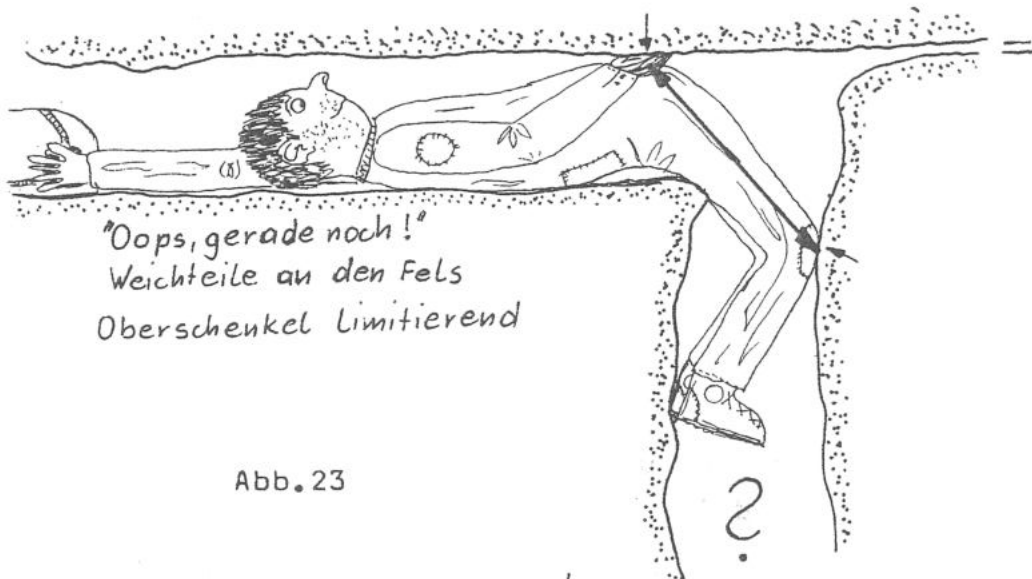 "Oops, gerade noch!"
Weichteile an den Fels
Oberschenkel Limitierend
Abb.23
?